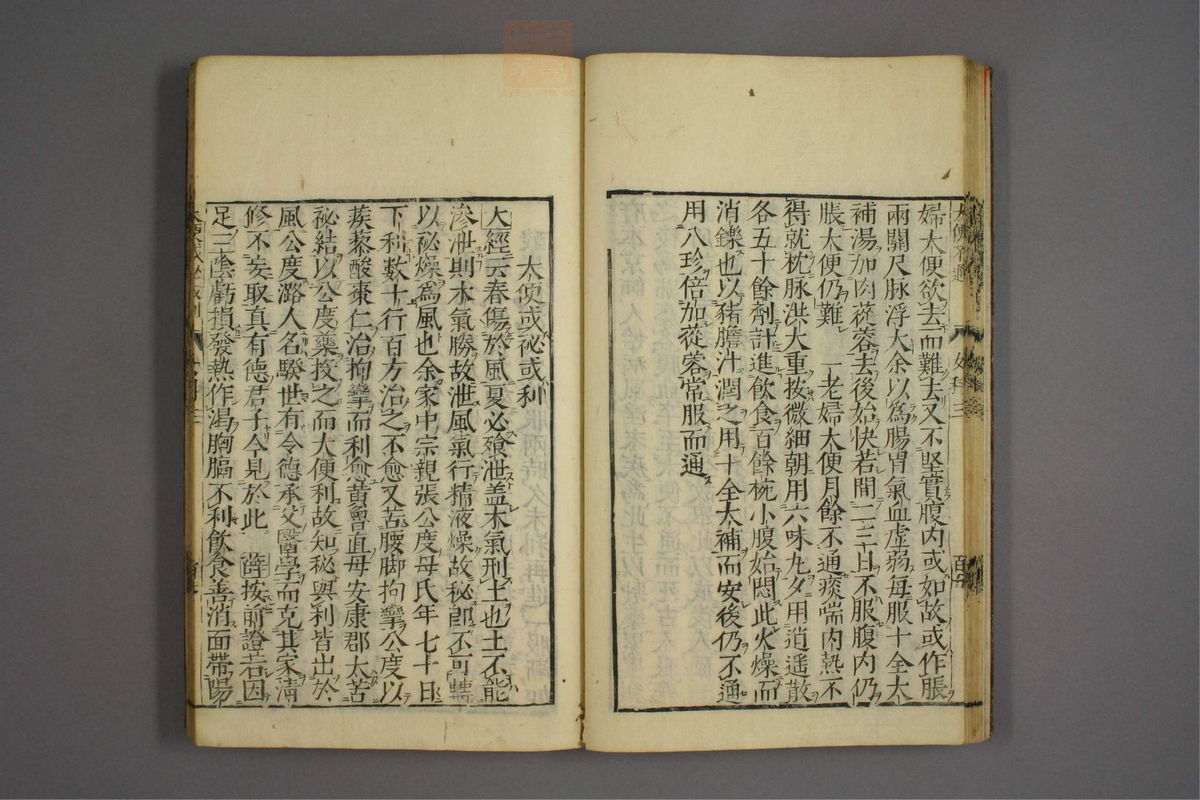 婦大便欲去而難去又不堅實腹内或如故或作脹
兩關尺脉浮大余以爲腸胃氣血虛弱每服十全大
補湯加肉蓯蓉去後始快若間二三日不服腹内仍
脹大便仍難 一老婦大便月餘不通痰喘内熱不
得就枕脉洪大重按微細朝用六味丸夕用逍遥散
各五十餘劑計進飲食百餘椀小腹始悶此火燥而
消鑠也以猪膽汁潤之用十全大補而安後仍不通
用八珍倍加蓯蓉常服而通
大便或祕或利
大經云春傷於風夏必飱泄盖木氣刑土也土不能
滲泄則木氣勝故泄風氣行精液燥故秘郎不可轉
以祕燥爲風也余家中宗親張公度母氏年七十日
下利數十行百方治之不愈又苦腰脚拘攣公度以
蒺蔾酸棗仁治拘攣而利愈黄魯直母安康郡太苦
祕結以公度藥投之而大便利故知秘與利皆出於
風公度潞人名騤世有令德承父醫學而克其家淸
修不妄取真有德君子今見於此 薛按前證若因
足三陰虧損發熱作渇胸膈不利飲食善消面帶陽